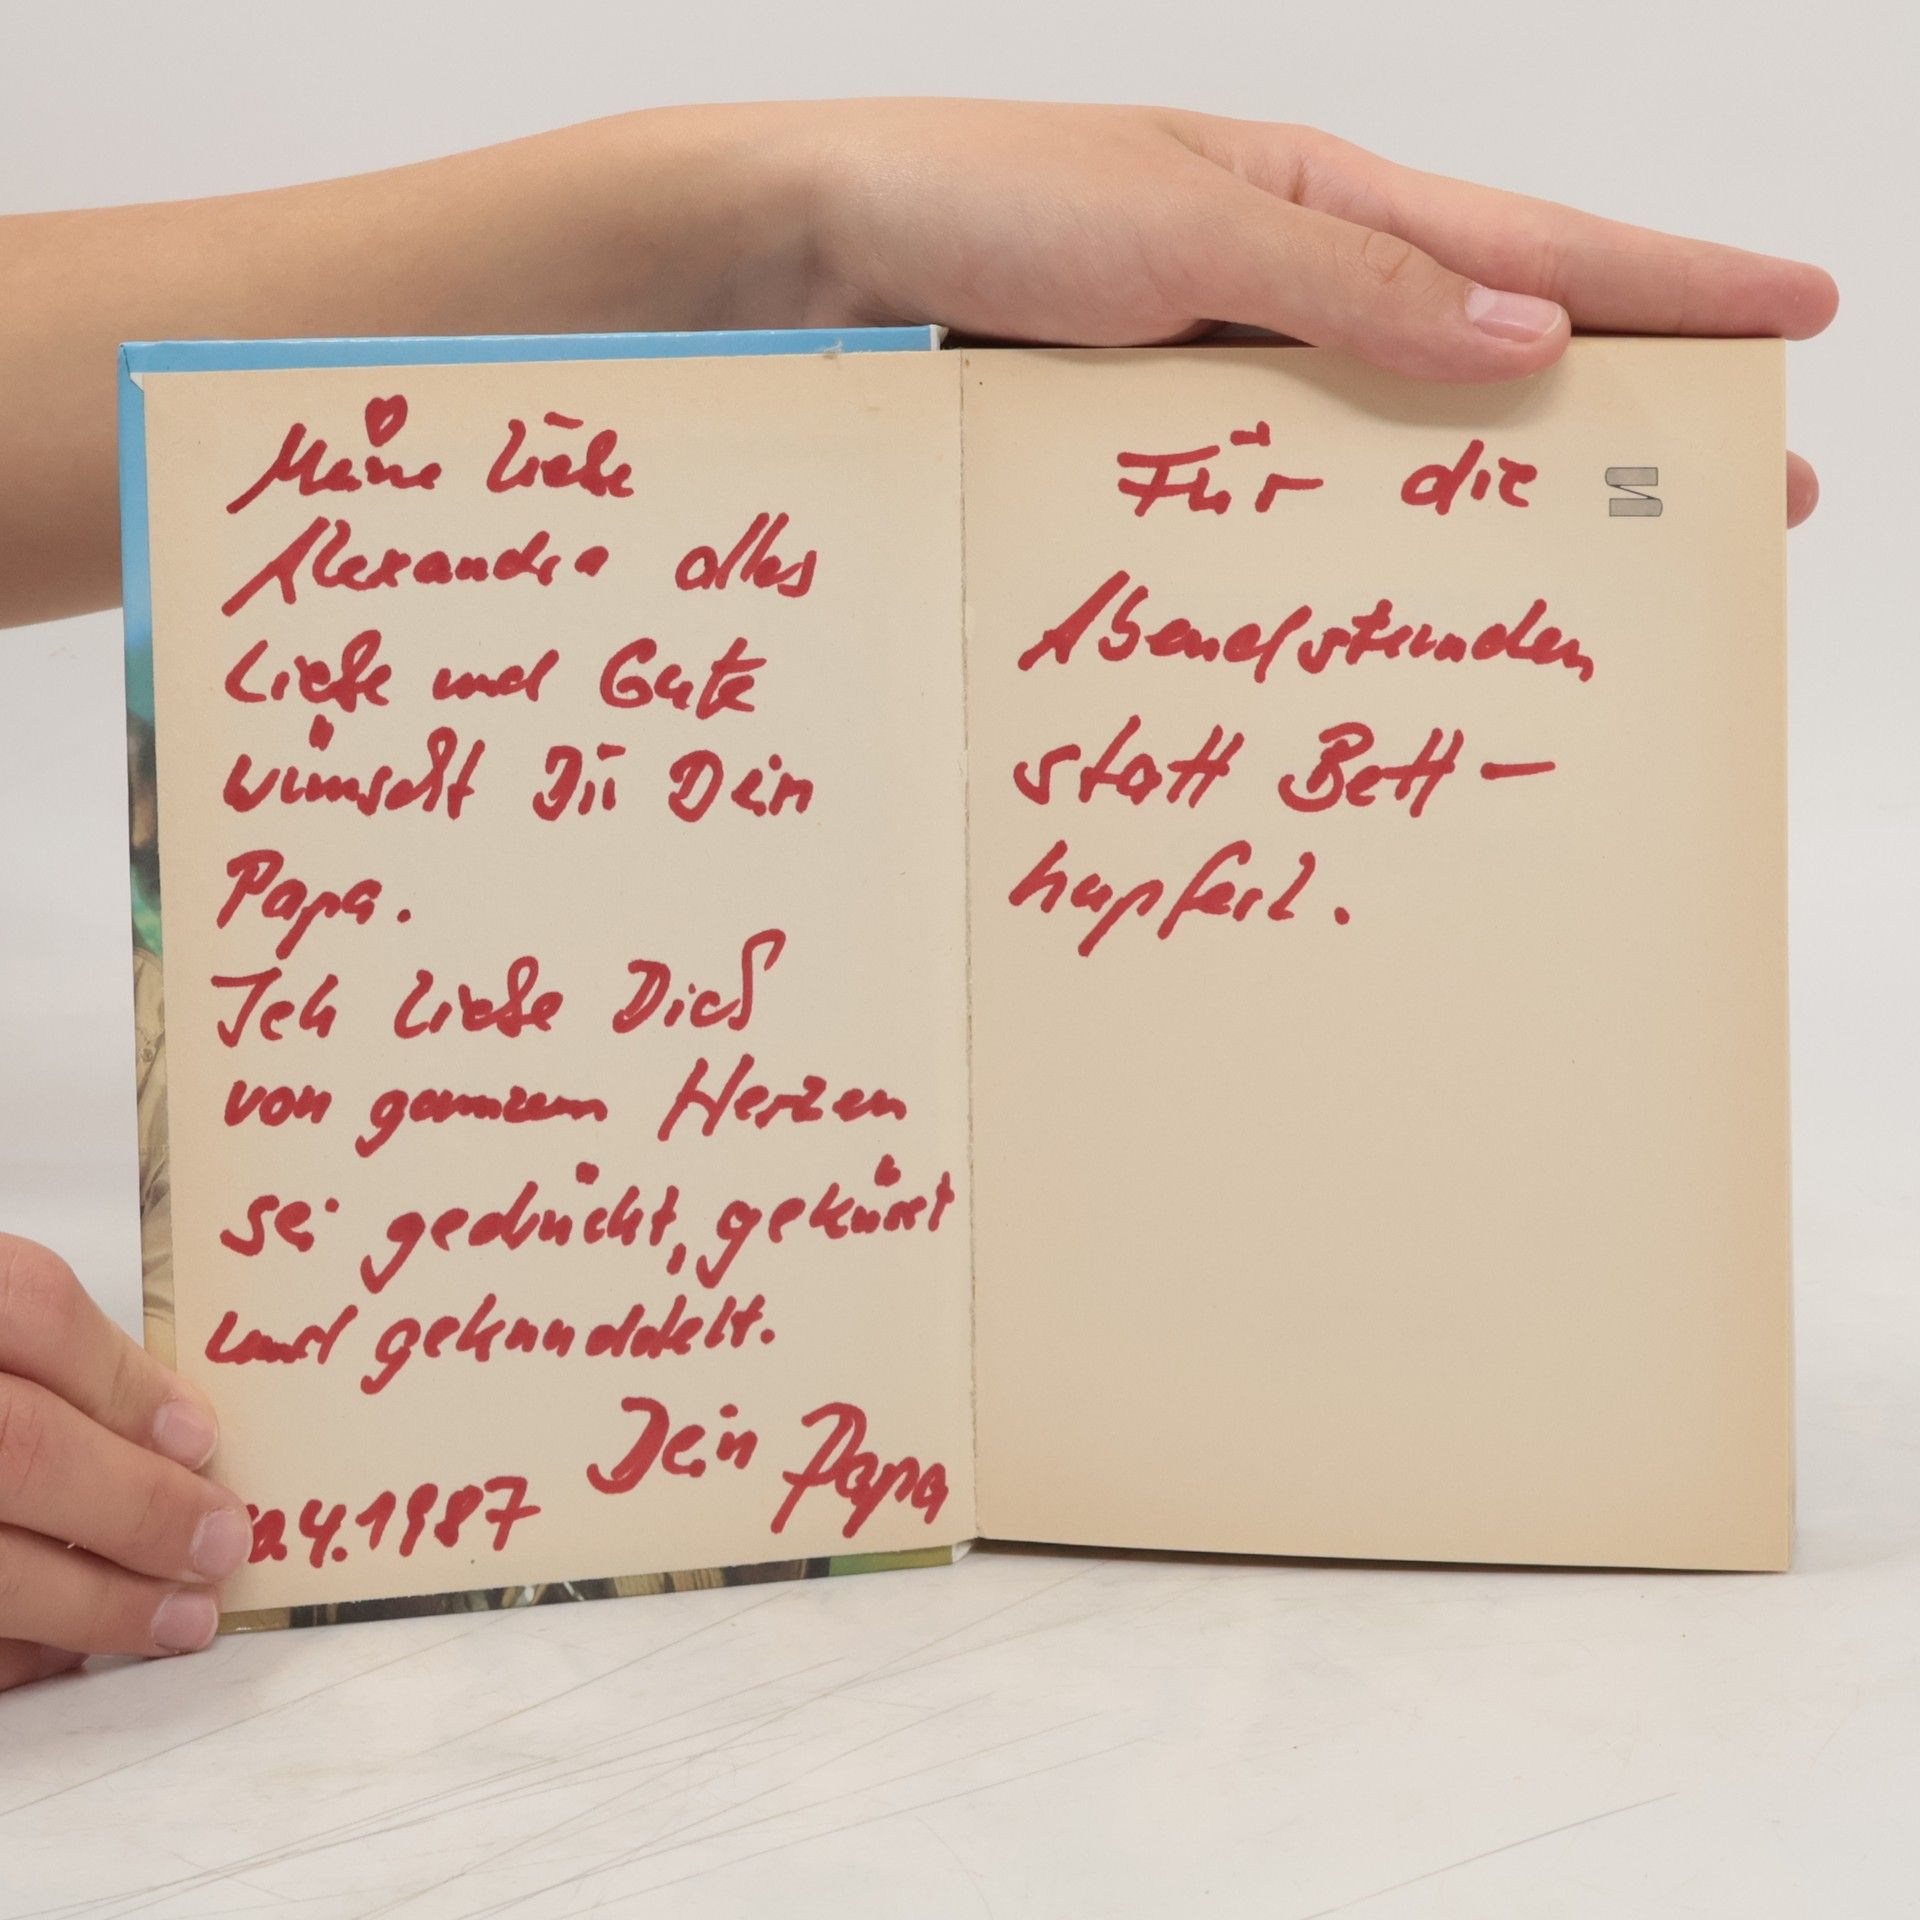 Meine liebe
Alexandra alles
Liebe und Gute
wünscht Dir Dein
Papa.
Ich liebe Dich
von ganzem Herzen
sei gedrückt, geküsst
und geknuddelt.
Dein Papa
.4.1987
Für die
Abendstunden
statt Bett-
hupferl.